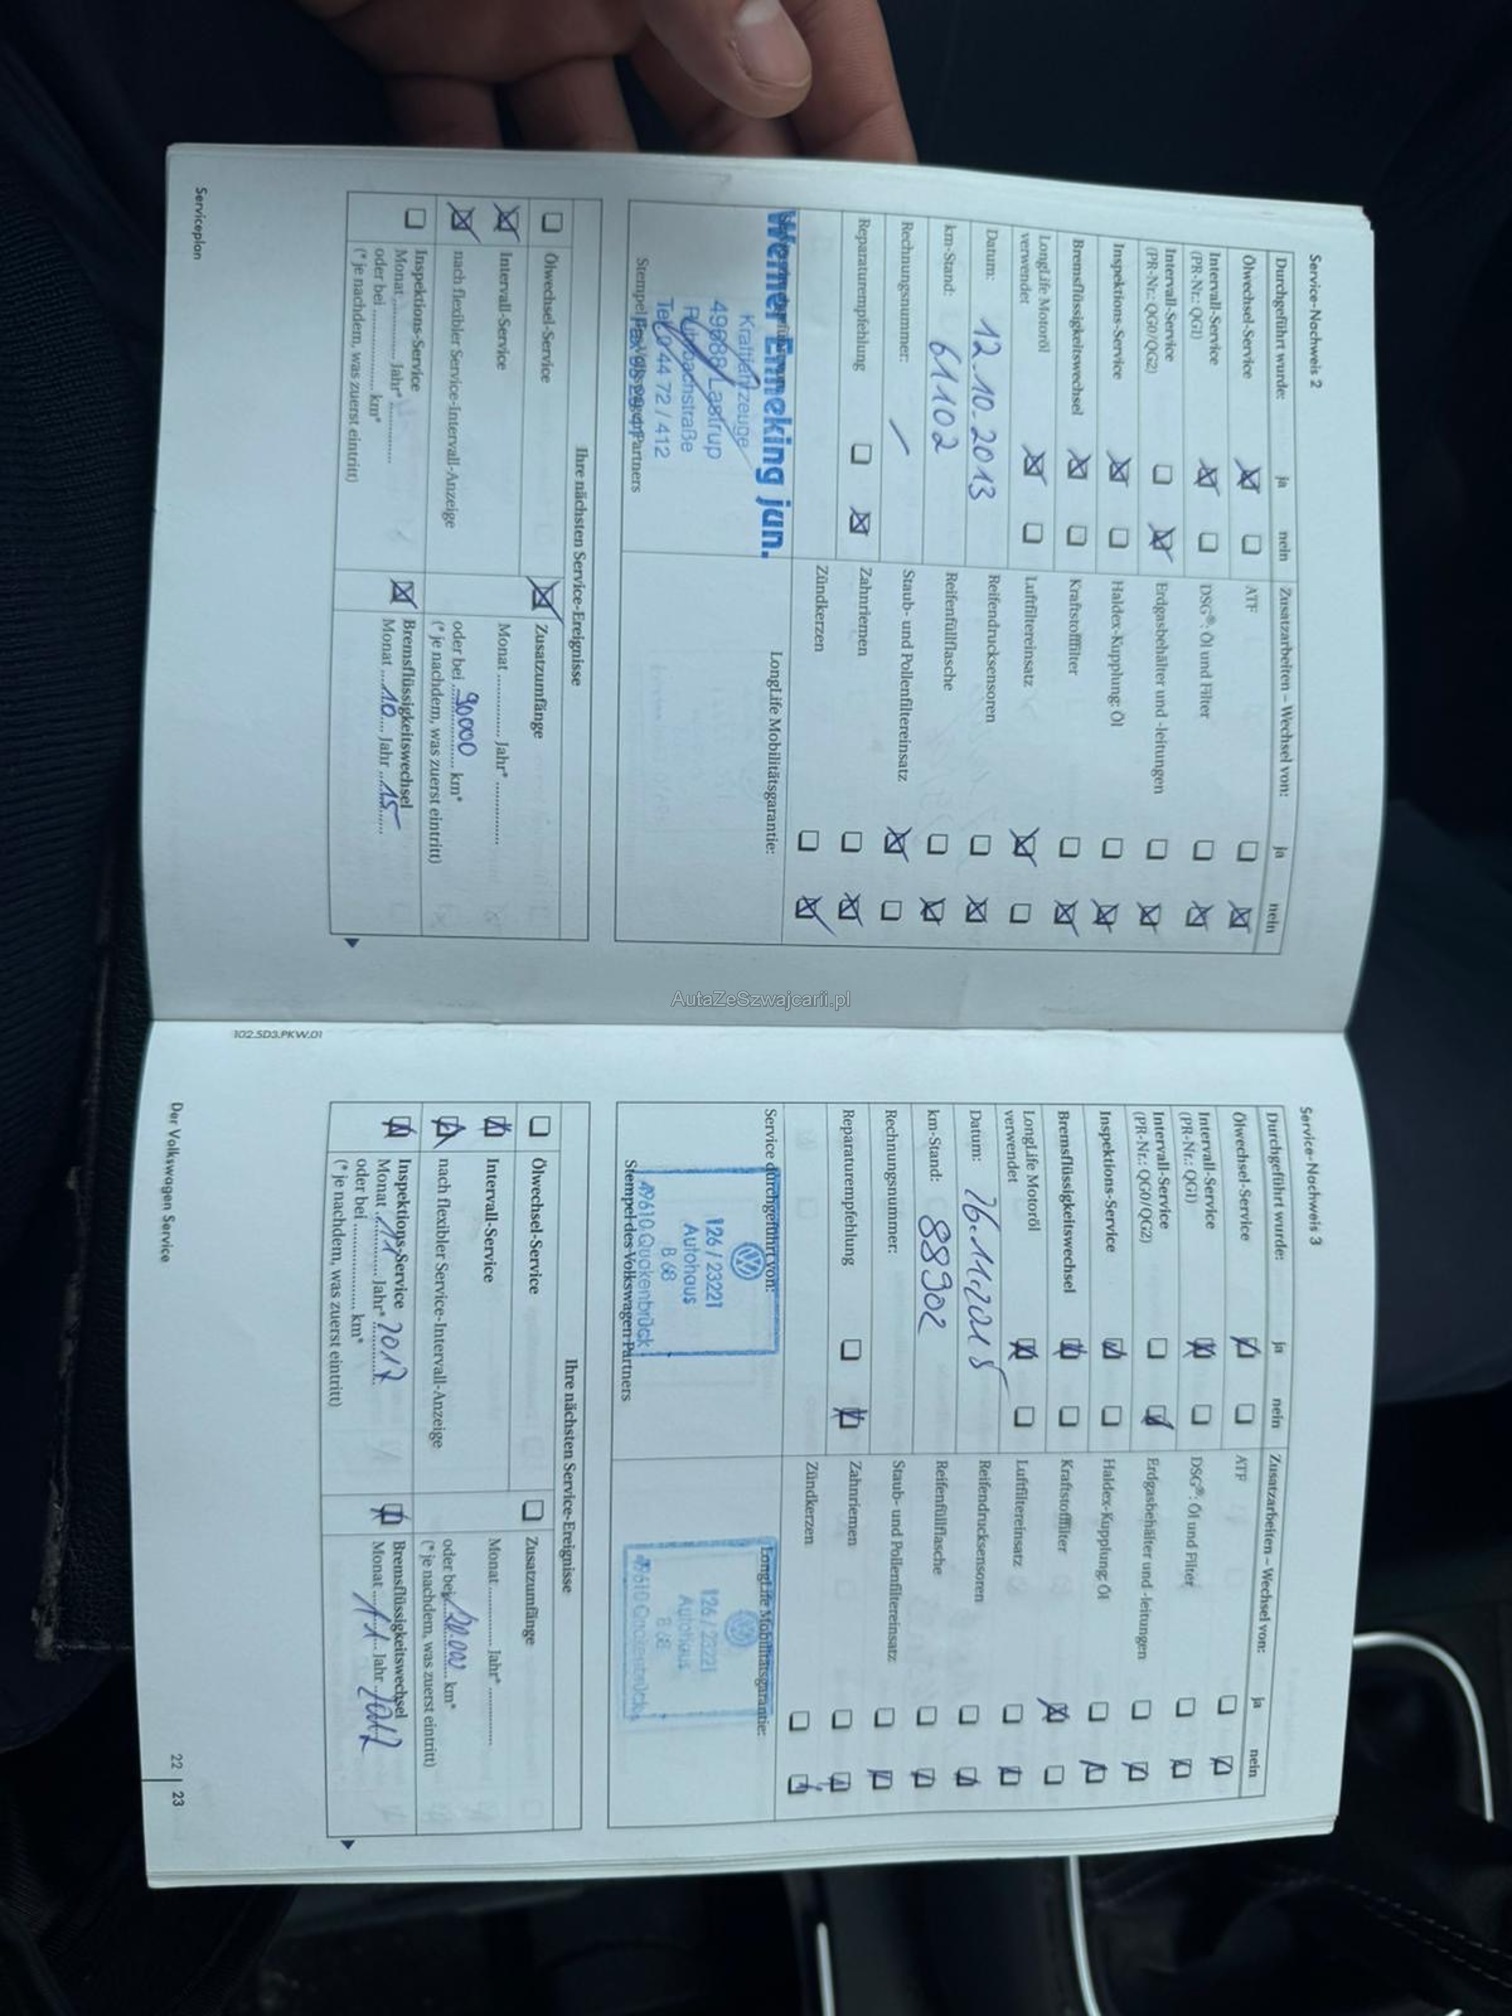 Service-Nachweis 2
Durchgeführt wurde: ja nein
Zusatzarbeiten – Wechsel von: ja nein
Ölwechsel-Service
ATF
Intervall-Service
(PR-Nr.: QG1)
DSG®: Öl und Filter
Intervall-Service
(PR-Nr.: QG0/QG2)
Erdgasbehälter und -leitungen
Inspektions-Service
Haldex-Kupplung: Öl
Bremsflüssigkeitswechsel
Kraftstofffilter
LongLife Motoröl
verwendet
Luftfiltereinsatz
Datum: 12.10.2013
Reifendrucksensoren
km-Stand: 61102
Reifenfüllflasche
Rechnungsnummer: /
Staub- und Pollenfiltereinsatz
Reparaturempfehlung
Zahnriemen
Zündkerzen
Werner Enneking jun.
Kraftfahrzeuge
49688 Lastrup
Tel. 0 44 72 / 412
Stempel des Volkswagen Partners
LongLife Mobilitätsgarantie:
Ihre nächsten Service-Ereignisse
Ölwechsel-Service
Zusatzumfänge
Intervall-Service
Monat ............ Jahr* ............
nach flexibler Service-Intervall-Anzeige
oder bei 90000 km*
(* je nachdem, was zuerst eintritt)
Inspektions-Service
Monat ............ Jahr* ............
oder bei ............ km*
(* je nachdem, was zuerst eintritt)
Bremsflüssigkeitswechsel
Monat 10 Jahr 15
Serviceplan
AutaZeSzwajcarii.pl
102.5D3.PKW.01
Service-Nachweis 3
Durchgeführt wurde: ja nein
Zusatzarbeiten – Wechsel von: ja nein
Ölwechsel-Service
ATF
Intervall-Service
(PR-Nr.: QG1)
DSG®: Öl und Filter
Intervall-Service
(PR-Nr.: QG0/QG2)
Erdgasbehälter und -leitungen
Inspektions-Service
Haldex-Kupplung: Öl
Bremsflüssigkeitswechsel
Kraftstofffilter
LongLife Motoröl
verwendet
Luftfiltereinsatz
Datum: 26.11.2015
Reifendrucksensoren
km-Stand: 88902
Reifenfüllflasche
Rechnungsnummer:
Staub- und Pollenfiltereinsatz
Reparaturempfehlung
Zahnriemen
Zündkerzen
Service durchgeführt von:
126 / 23221
Autohaus
B 68
49610 Quakenbrück
Stempel des Volkswagen Partners
LongLife Mobilitätsgarantie:
126 / 23221
Autohaus
B 68
49610 Quakenbrück
Ihre nächsten Service-Ereignisse
Ölwechsel-Service
Zusatzumfänge
Intervall-Service
Monat ............ Jahr* ............
nach flexibler Service-Intervall-Anzeige
oder bei km*
(* je nachdem, was zuerst eintritt)
Inspektions-Service
Monat 11 Jahr* 2017
oder bei ............ km*
(* je nachdem, was zuerst eintritt)
Bremsflüssigkeitswechsel
Monat 11 Jahr 2017
Der Volkswagen Service
22 | 23